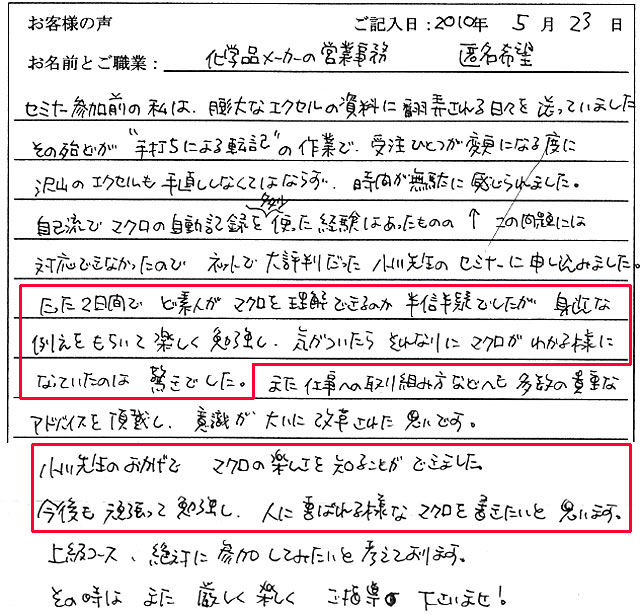 お客様の声 ご記入日：2010年 5月 23日
お名前とご職業： 化学品メーカーの営業事務 匿名希望
セミナー参加前の私は、膨大なエクセルの資料に翻弄される日々を送っていました
その殆どが"手打ちによる転記"の作業で、受注ひとつが変更になる度に
沢山のエクセルも手直ししなくてはならず、時間が無駄に感じられました。
多少
自己流でマクロの自動記録を使った経験はあったものの ↑ この問題には
対応できなかったので ネットで大評判だった小川先生のセミナーに申し込みました。
たった2日間で ど素人がマクロを理解できるのか半信半疑でしたが 身近な
例えをもちいて楽しく勉強し、気がついたらそれなりにマクロがわかる様に
なっていたのは 驚きでした。 また仕事への取り組み方などへも多数の貴重な
アドバイスを頂戴し、意識が大いに改革された思いです。
小川先生のおかげで マクロの楽しさを知ることができました。
今後も頑張って勉強し、人に喜ばれる様なマクロを書きたいと思います。
上級コース、絶対に参加してみたいと考えております。
その時は また 厳しく楽しく ご指導 下さいませ！